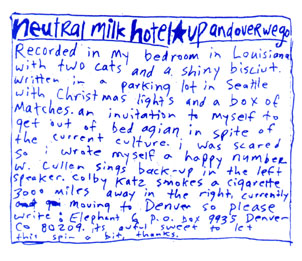 neutral milk hotel★up and over we go
Recorded in my bedroom in Louisiana
with two cats and a shiny bisciut.
Written in a parking lot in Seattle
with Christmas lights and a box of
Matches. an invitation to myself to
get out of bed agian in spite of
the current culture. i was scared
so i wrote myself a happy number
W. Cullen sings back-up in the left
speaker. Colby Katz smokes a cigarette
3000 miles away in the right. currently
moving to Denver so please
write: Elephant 6 p.o. box 9935 Denver
Co 80209. its awful sweet to let
this spin a bit, thanks.